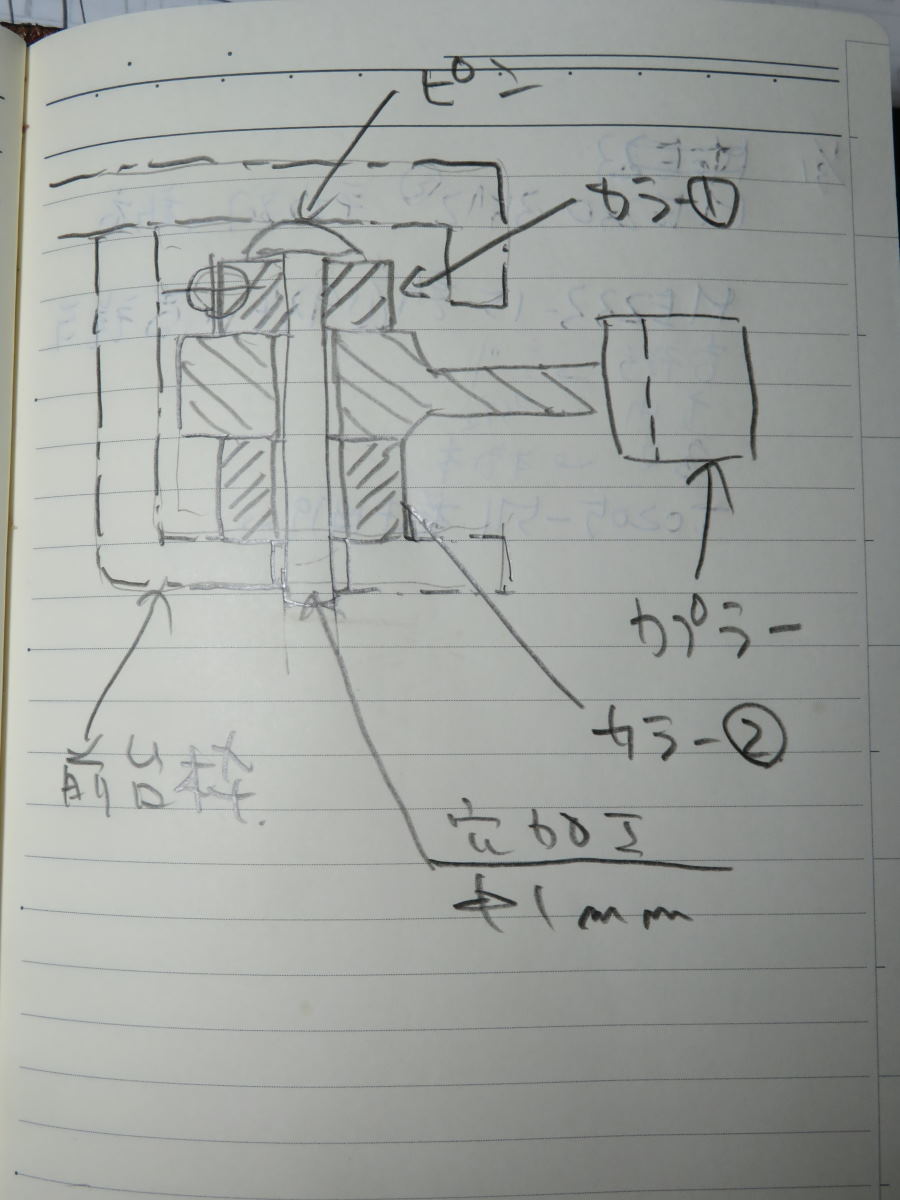 ピン
カラー①
カプラー
カラー②
前台枠
穴加工
φ1mm